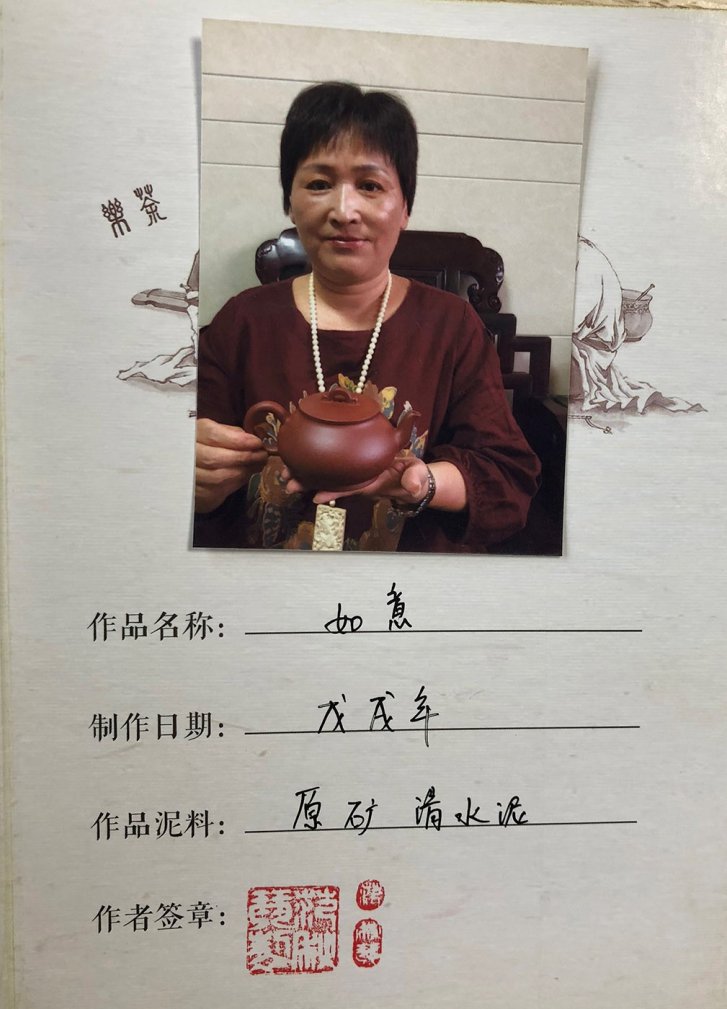 樂茶
作品名称: 如意
制作日期: 戊戌年
作品泥料: 原矿 清水泥
作者签章: